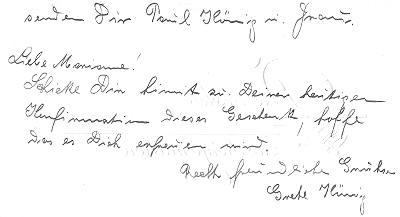 senden Dir Paul König u. Frau.
Liebe Marianne!
Schicke Dir hiermit zu Deiner heutigen
Konfirmation dieses Geschenk, hoffe
das es Dich erfreuen wird.
Recht freundliche Grüße
Grete König